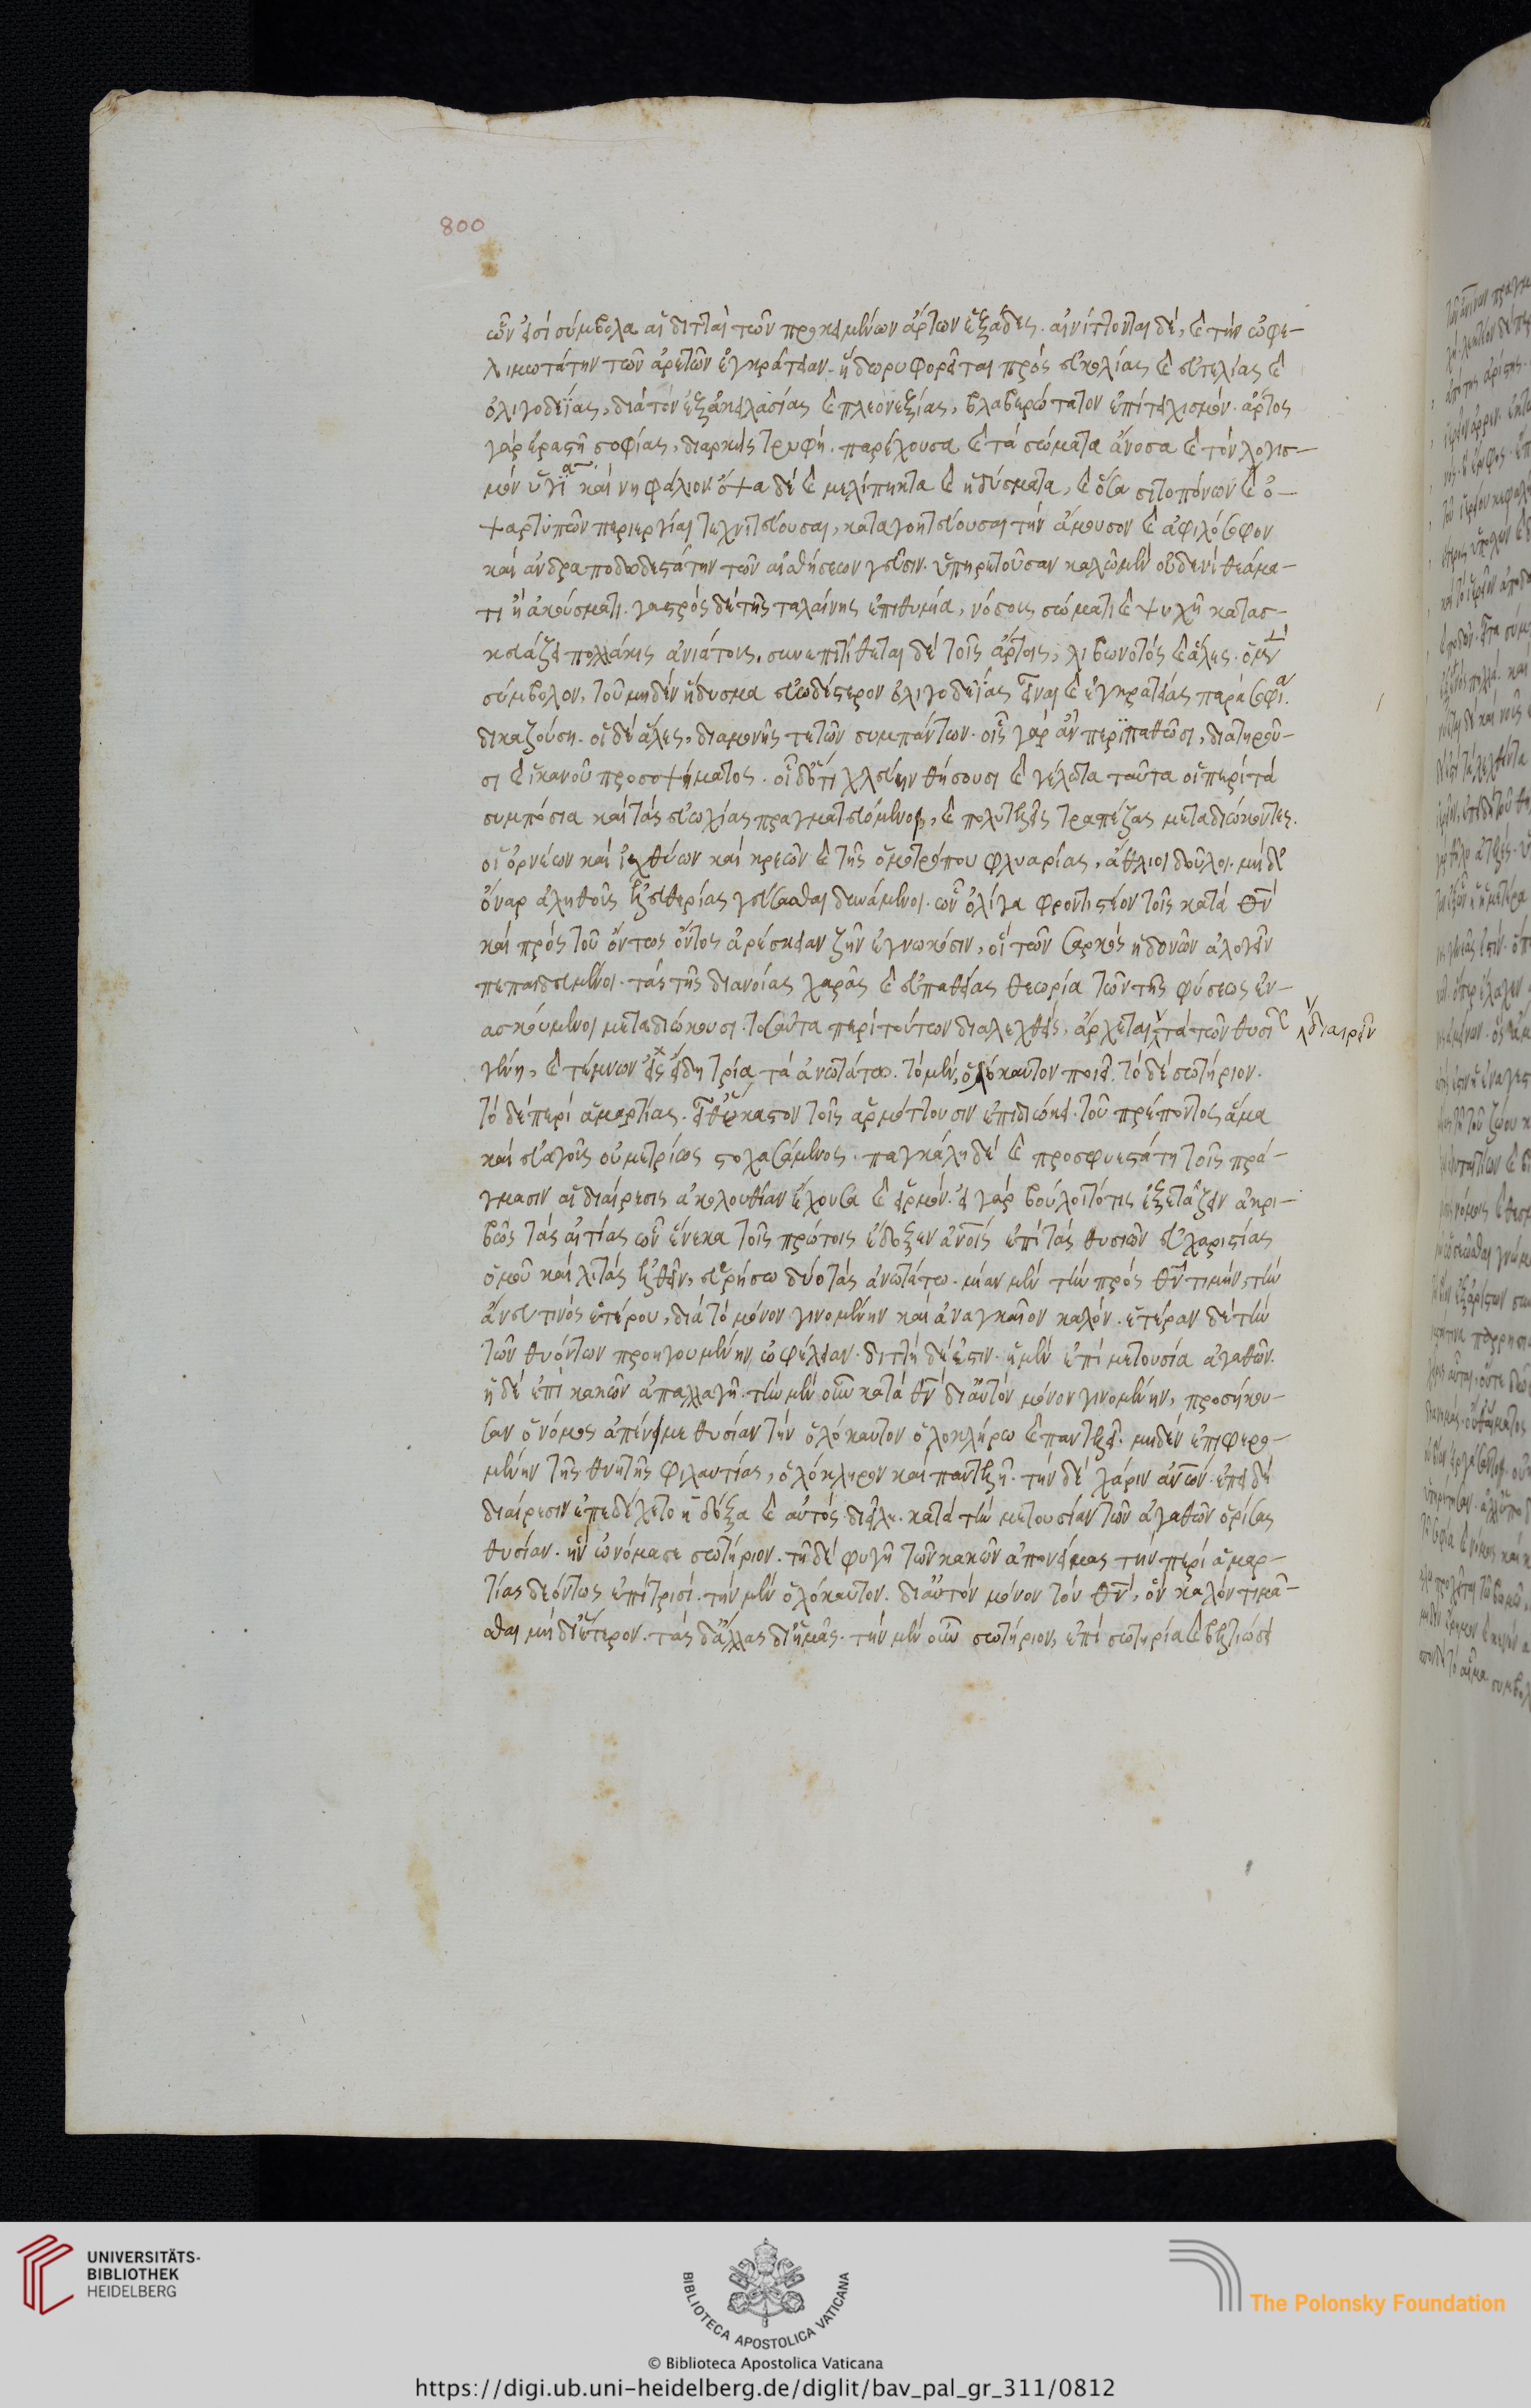 800
ὧν εἰσὶ σύμβολα αἱ διτταὶ τῶν προκειμένων ἄρτων ἑξάδες. αἰνίττονται δὲ, καὶ τὴν ὠφε-
λιμωτάτην τῶν ἀρετῶν ἐγκράτειαν. ἡ δωρυφορεῖται πρὸς εὐκολίας καὶ εὐτελίας καὶ
ὀλιγοδεΐας, διὰ τὸν ἐξ ἀκολασίας καὶ πλεονεξίας, βλαβερώτατον ἐπίτειχισμόν. ἄρτος
γὰρ ἐραστῇ σοφίας, διαρκὴς τρυφή. παρέχουσα καὶ τὰ σώματα ἄνοσα καὶ τὸν λογισ-
μὸν ὑγιᾶ καὶ νηφάλιον. ὄψα δὲ καὶ μελίπηκτα καὶ ἡδύσματα, καὶ ὅσα σιτοπόνων καὶ ὀ-
ψαρτυπῶν περιεργίαι τεχνιτεύουσαι, καταγοητεύουσαι τὴν ἄμουσον καὶ ἀφιλόσοφον
καὶ ἀνδραποδωδεστάτην τῶν αἰσθήσεων γεῦσιν. ὑπηρετοῦσαν καλῷ μὲν οὐδενὶ θεάμα-
τι ἢ ἀκούσματι. γαστρὸς δὲ τῆς ταλαίνης ἐπιθυμία, νόσους σώματι καὶ ψυχῇ κατασ-
κευάζει πολλάκις ἀνιάτους. συνεπιτίθεται δὲ τοῖς ἄρτοις, λιβανωτὸς καὶ ἅλες. ὁ μὲν
σύμβολον, τοῦ μηδὲν ἥδυσμα εὐωδέστερον ὀλιγοδεΐας εἶναι καὶ ἐγκρατείας παρὰ σοφίᾳ
δικαζούσῃ. οἱ δὲ ἅλες, διαμονῆς τε τῶν συμπάντων. οἷς γὰρ ἂν περιπαθῶσι, διατηροῦ-
σι καὶ ἱκανοῦ προσοψήματος. οἶδ' ὅτι χλεύην θήσουσι καὶ γέλωτα ταῦτα οἱ περὶ τὰ
συμπόσια καὶ τὰς εὐωχίας πραγματευόμενοι, καὶ πολυτελεῖς τραπέζας μεταδιώκοντες.
οἱ ὀρνέων καὶ ἰχθύων καὶ κρεῶν καὶ τῆς ὁμοτρόπου φλυαρίας, ἄθλιοι δοῦλοι. μηδ'
ὄναρ ἀληθοῦς ἐλευθερίας γεύσασθαι δυνάμενοι. ὧν ὀλίγα φροντιστέον τοῖς κατὰ θν
καὶ πρὸς τοῦ ὄντως ὄντος ἀρέσκειαν ζῆν ἐγνωκόσιν, οἳ τῶν σαρκὸς ἡδονῶν ἀλογεῖν
πεπαιδευμένοι. τὰς τῆς διανοίας χαρὰς καὶ εὐπαθείας θεωρία τῶν τῆς φύσεως ἐν-
ασκούμενοι μεταδιώκουσι. τοσαῦτα περὶ τούτων διαλεχθείς, ἄρχεται τὰ τῶν θυσιῶν διαιρεῖν
γένη, καὶ τέμνων εἰς εἴδη τρία τὰ ἀνωτάτω. τὸ μὲν, ὁλόκαυτον ποιεῖ. τὸ δὲ σωτήριον.
τὸ δὲ περὶ ἁμαρτίας. εἶθ' ἕκαστον τοῖς ἁρμόττουσιν ἐπιδιώκει. τοῦ πρέποντος ἅμα
καὶ εὐαγοῦς οὐ μετρίως στοχασάμενος. παγκάλη δὲ καὶ προσφυεστάτη τοῖς πρά-
γμασιν αἱ διαίρεσις ἀκολουθίαν ἔχουσα καὶ εἱρμόν. εἰ γὰρ βούλοιτό τις ἐξετάζειν ἀκρι-
βῶς τὰς αἰτίας ὧν ἕνεκα τοῖς πρώτοις ἔδοξεν ἀνοις ἐπὶ τὰς θυσιῶν εὐχαριστίας
ὁμοῦ καὶ λιτὰς ἐλθεῖν, εὑρήσω δύο τὰς ἀνωτάτω. μίαν μὲν τὴν πρὸς θν τιμὴν, τὴν
ἄνευ τινὸς ἑτέρου, διὰ τὸ μόνον γινομένην καὶ ἀναγκαῖον καλόν. ἑτέραν δὲ τὴν
τῶν θυόντων προηγουμένην ὠφέλειαν. διττὴ δέ ἐστιν. ἡ μὲν ἐπὶ μετουσία ἀγαθῶν.
ἡ δὲ ἐπὶ κακῶν ἀπαλλαγῇ. τὴν μὲν οὖν κατὰ θν δι' αὐτὸν μόνον γινομένην, προσήκου-
σαν ὁ νόμος ἀπένειμε θυσίαν τὴν ὁλόκαυτον ὁλοκλήρω καὶ παντελεῖ. μηδὲν ἐπιφερο-
μένην τῆς θνητῆς φιλαυτίας, ὁλόκληρον καὶ παντελῆ. τὴν δὲ χάριν ἀνων. ἐπειδὴ
διαίρεσιν ἐπεδέχετο ἡ δόξα καὶ αὐτός. διεῖλε. κατὰ τὴν μετουσίαν τῶν ἀγαθῶν ὁρίσας
θυσίαν. ἣν ὠνόμασε σωτήριον. τῇ δὲ φυγῇ τῶν κακῶν ἀπονείμας τὴν περὶ ἁμαρ-
τίας δεόντως ἐπὶ τρισί. τὴν μὲν ὁλόκαυτον. δι' αὐτὸν μόνον τὸν θν, ὃν καλὸν τιμᾶ-
σθαι μὴ δι' ἕτερον. τὰς δ' ἄλλας δι' ἡμᾶς. τὴν μὲν οὖν σωτήριον, ἐπὶ σωτηρία καὶ βελτιώσει
UNIVERSITÄTS-
BIBLIOTHEK
HEIDELBERG
BIBLIOTECA APOSTOLICA VATICANA
The Polonsky Foundation
© Biblioteca Apostolica Vaticana
https://digi.ub.uni-heidelberg.de/diglit/bav_pal_gr_311/0812